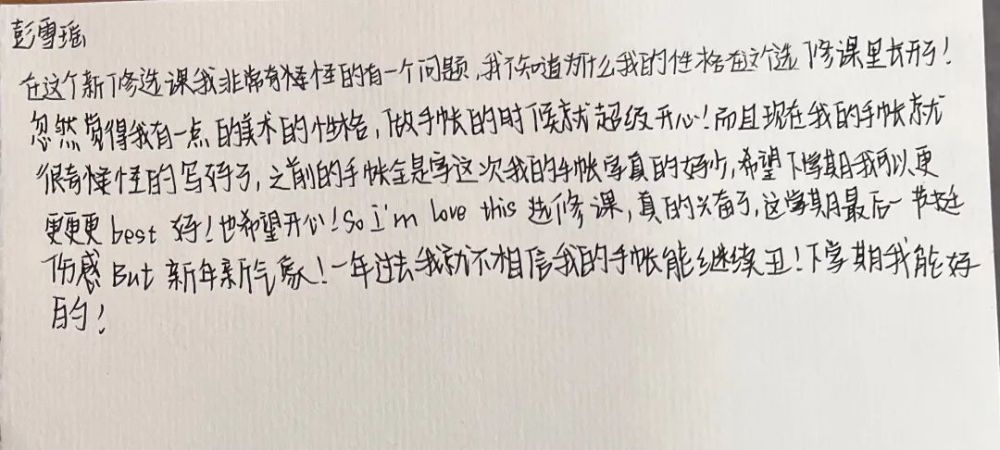 彭雪瑶
在这个新修选课我非常奇怪怪的有一个问题,我不知道为什么我的性格在这个选修课里长开了!
忽然觉得我有一点的美术的性格,做手帐的时候就超级开心!而且现在我的手帐就
很奇怪怪的写好了,之前的手帐全是字这次我的手帐字真的好少,希望下学期我可以更
更更更 best 好!也希望开心!So i'm love this 选修课,真的兴奋了,这学期最后一节挺
伤感 But 新年新气象!一年过去我就不相信我的手帐能继续丑!下学期我能好
的!